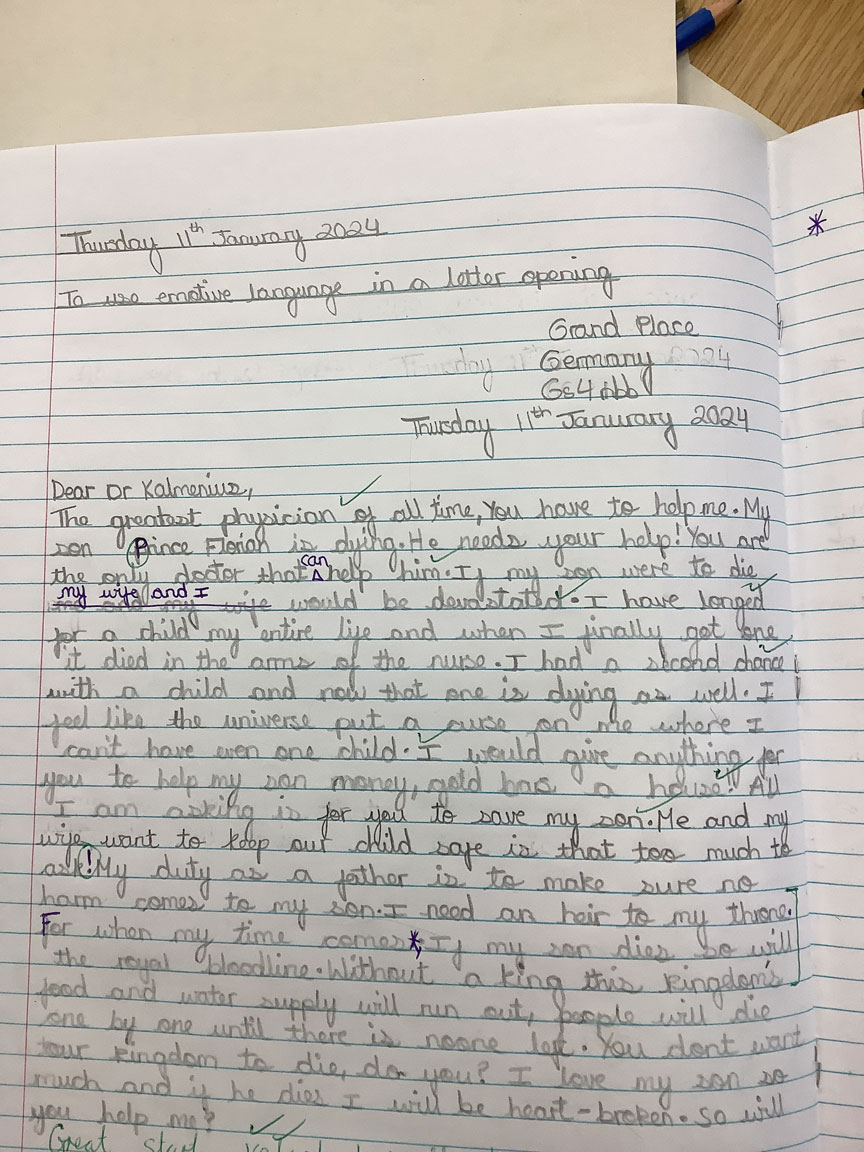 Thursday 11th Janurary 2024
To use emotive language in a letter opening
Grand Place
Germany
Gs4 6bb
Thursday 11th Janurary 2024
Dear Dr Kalmenius,
The greatest physician of all time, You have to help me. My
son Prince Florian is dying. He needs your help! You are
the only doctor that can help him. If my son were to die
my wife and I would be devastated. I have longed
for a child my entire life and when I finally got one
it died in the arms of the nurse. I had a second chance
with a child and now that one is dying as well. I
feel like the universe put a curse on me where I
can't have even one child. I would give anything for
you to help my son money, gold bars a house! All
I am asking is for you to save my son. Me and my
wife want to keep our child safe is that too much to
ask! My duty as a father is to make sure no
harm comes to my son. I need an heir to my throne.
For when my time comes*, If my son dies so will
the royal bloodline. Without a king this kingdom's
food and water supply will run out, people will die
one by one until there is noone left. You dont want
your kingdom to die, do you? I love my son so
much and if he dies I will be heart-broken. So will
you help me?
Great start
*